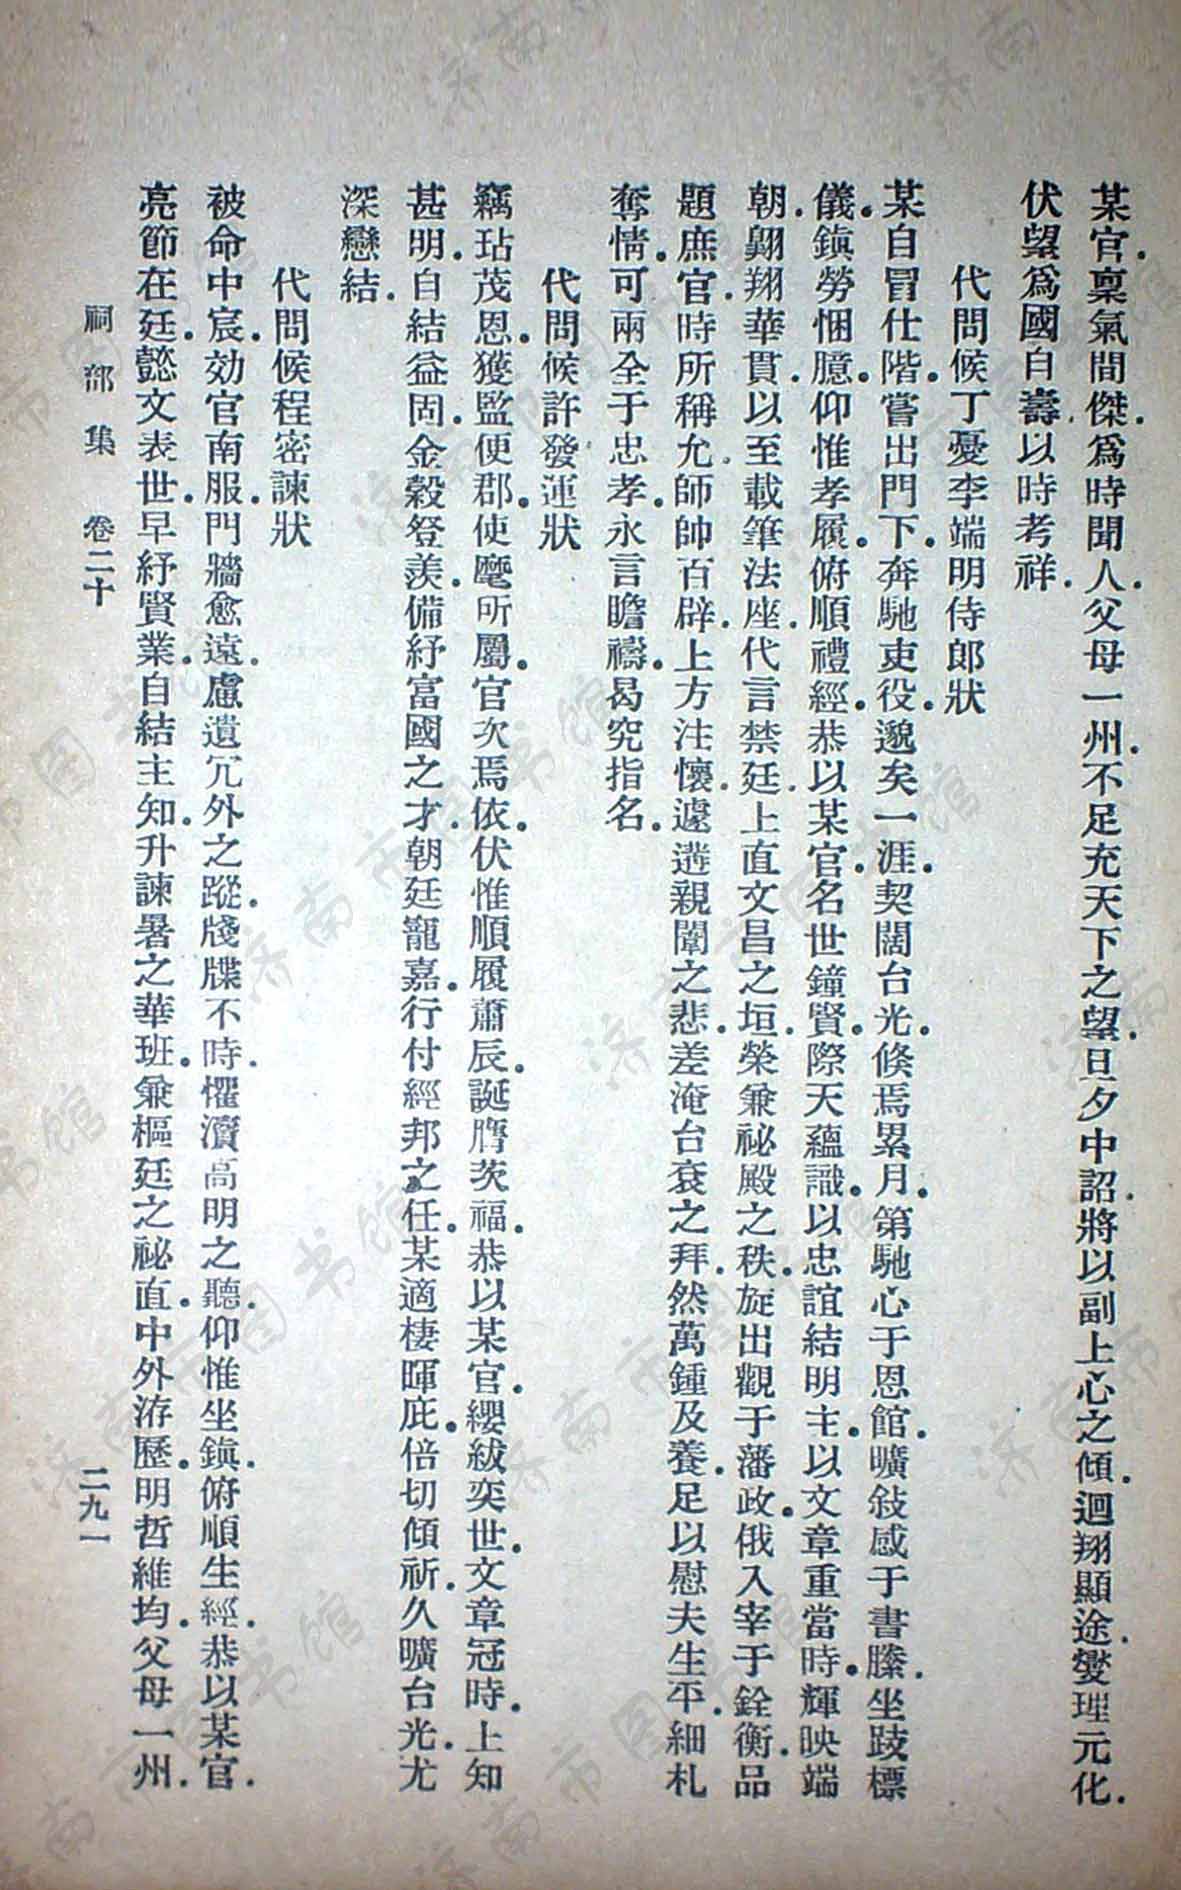 某官.稟氣間傑.爲時聞人.父母一州.不足充天下之望.旦夕中詔.將以副上心之傾.迴翔顯途.燮理元化.
伏望爲國自壽.以時考祥.
代問候丁憂李端明侍郎狀
某自冒仕階.嘗出門下.奔馳吏役.邈矣一涯.契闊台光.倏焉累月.第馳心于恩館.曠敍感于書縢.坐跂標
儀.鎭勞悃臆.仰惟孝履.俯順禮經.恭以某官.名世鐘賢.際天蘊識.以忠誼結明主.以文章重當時.輝映端
朝.翺翔華貫.以至載筆法座.代言禁廷.上直文昌之垣.榮兼祕殿之秩.旋出觀于藩政.俄入宰于銓衡.品
題庶官.時所稱允.師帥百辟.上方注懷.遽遘親闈之悲.差淹台袞之拜.然萬鍾及養.足以慰夫生平.細札
奪情.可兩全于忠孝.永言瞻禱.曷究指名.
代問候許發運狀
竊玷茂恩.獲監便郡.使麾所屬.官次焉依.伏惟順履蕭辰.誕膺茨福.恭以某官.纓紱奕世.文章冠時.上知
甚明.自結益固.金穀登羨.備紓富國之才.朝廷寵嘉.行付經邦之任.某適棲暉庇.倍切傾祈.久曠台光.尤
深戀結.
代問候程密諫狀
被命中宸.効官南服.門牆愈遠.慮遺冗外之蹤.牋牒不時.懼瀆高明之聽.仰惟坐鎭.俯順生經.恭以某官.
亮節在廷.懿文表世.早紓賢業.自結主知.升諫署之華班.兼樞廷之祕直.中外洊歷.明哲維均.父母一州.
祠部集 卷二十 二九一